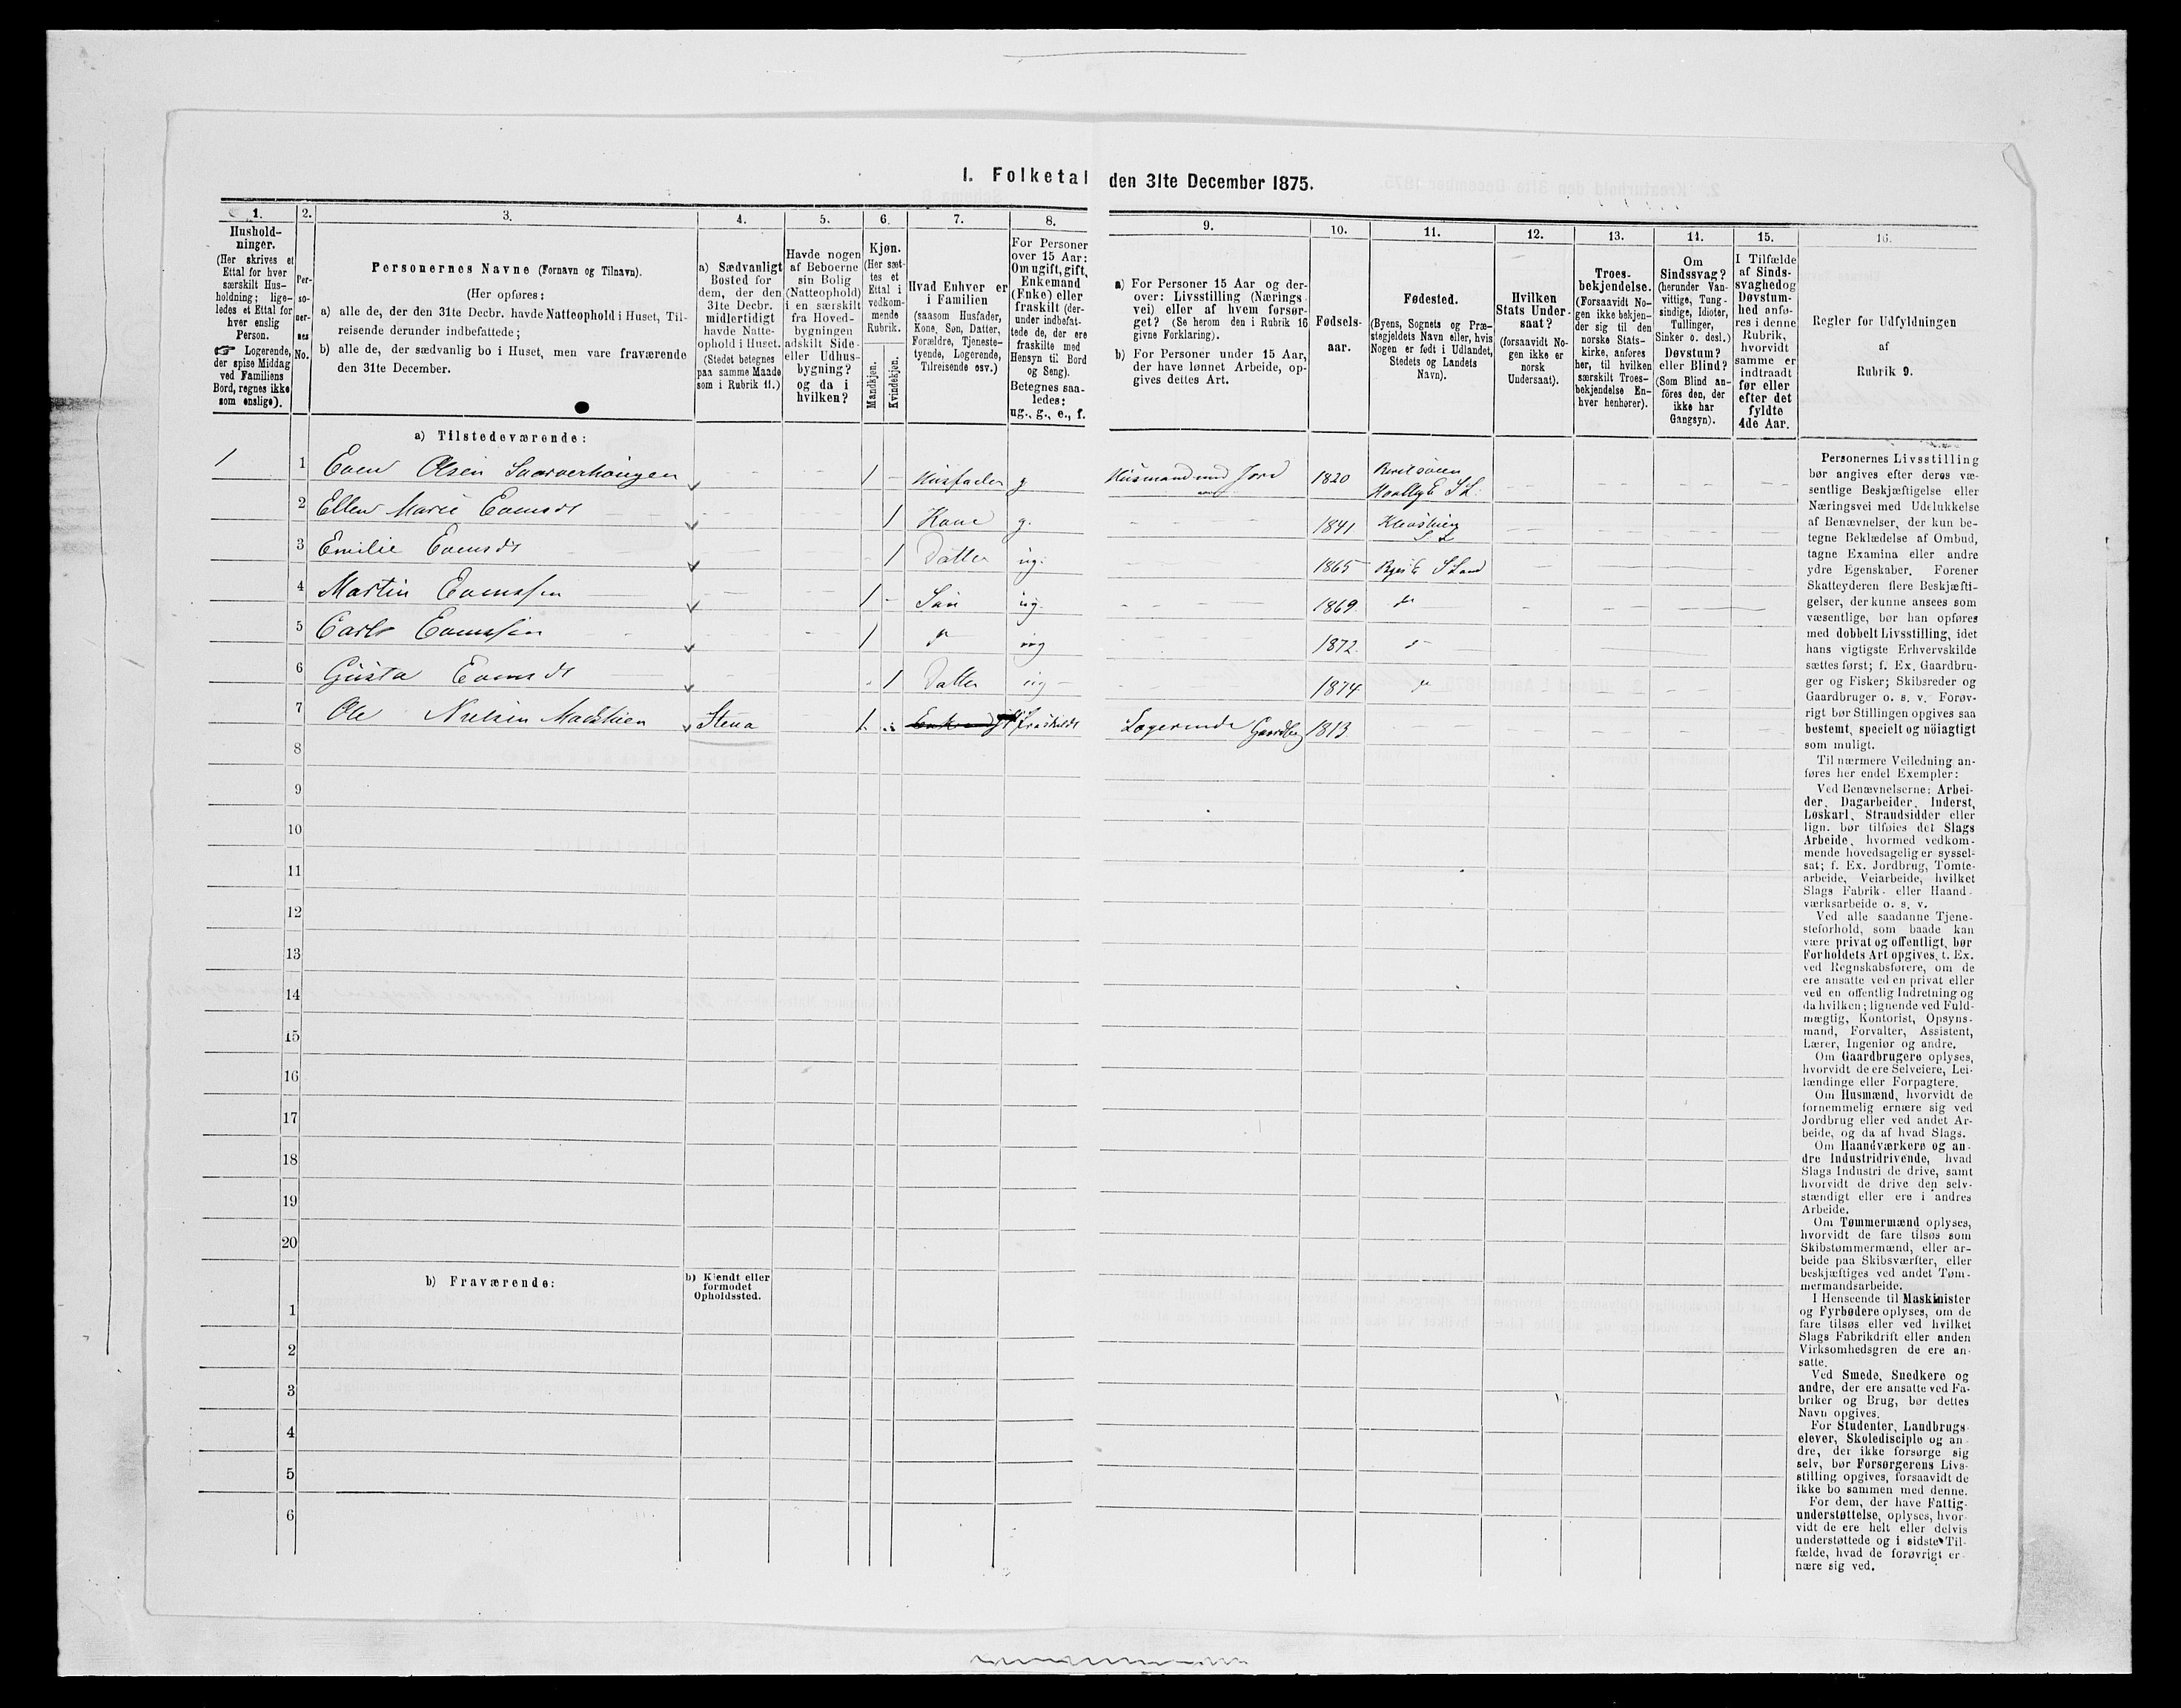 I. Folketal den 31te December 1875.
1.
Hushold-
ninger.
(Her skrives et
Ettal for hver
særskilt Hus-
holdning; lige-
ledes et Ettal for
hver enslig
Person.
☞ Logerende,
der spise Middag
ved Familiens
Bord, regnes ikke
som enslige).
2.
Per-
so-
ner-
nes
No.
3.
Personernes Navne (Fornavn og Tilnavn).
(Her opføres:
a) alle de, der den 31te Decbr. havde Natteophold i Huset, Til-
reisende derunder indbefattede;
b) alle de, der sædvanlig bo i Huset, men vare fraværende
den 31te December.
4.
a) Sædvanligt
Bosted for
dem, der den
31te Decbr.
midlertidigt
havde Natte-
ophold i Huset.
(Stedet betegnes
paa samme Maade
som i Rubrik 11.)
5.
Havde nogen
af Beboerne
sin Bolig
(Natteophold)
i en særskilt
fra Hoved-
bygningen
adskilt Side-
eller Udhus-
bygning?
og da i
hvilken?
6.
Kjøn.
(Her sæt-
tes et
Ettal i
vedkom-
mende
Rubrik.
Mandkjøn.
Kvindekjøn.
7.
Hvad Enhver er
i Familien
(saasom Husfader,
Kone, Søn, Datter,
Forældre, Tjeneste-
tyende, Logerende,
Tilreisende osv.)
8.
For Personer
over 15 Aar:
Om ugift, gift,
Enkemand
(Enke) eller
fraskilt (der-
under indbefat-
tede de, der ere
fraskilte med
Hensyn til Bord
og Seng).
Betegnes saa-
ledes:
ug., g., e., f.
9.
a) For Personer 15 Aar og der-
over: Livsstilling (Nærings-
vei) eller af hvem forsør-
get? (Se herom den i Rubrik 16
givne Forklaring).
b) For Personer under 15 Aar,
der have lønnet Arbeide, op-
gives dettes Art.
10.
Fødsels-
aar.
11.
Fødested.
(Byens, Sognets og Præ-
stegjeldets Navn eller, hvis
Nogen er født i Udlandet,
Stedets og Landets
Navn).
12.
Hvilken
Stats Under-
saat?
(forsaavidt No-
gen ikke er
norsk
Undersaat).
13.
Troes-
bekjendelse.
(Forsaavidt No-
gen ikke bekjen-
der sig til den
norske Stats-
kirke, anføres
her, til hvilken
særskilt Troes-
bekjendelse En-
hver henhører).
14.
Om
Sindssvag?
(herunder Van-
vittige, Tung-
sindige, Idioter,
Tullinger,
Sinker o. desl.)
Døvstum?
eller Blind?
(Som Blind an-
føres den, der
ikke har
Gangsyn).
15.
I Tilfælde
af Sinds-
svaghed og
Døvstum-
hed anfø-
res i denne
Rubrik,
hvorvidt
samme er
indtraadt
før eller
efter det
fyldte
4de Aar.
16.
Regler for Udfyldningen
af
Rubrik 9.
a) Tilstedeværende:
1 1 Even Olsen 1 Husfader g Husmand med Jord 1820
2 Ellen Marie Evensdt 1 Kone g. 1841
3 Emilie Evensdt 1 Datter ug. 1865
4 Martin Evensøn 1 Søn ug. 1869
5 Carl Evensøn 1 ug 1872
6 Gusta Evensdt 1 Datter ug 1874
7 Ole Nielsen Stena 1 fraskildt Logerende Gaardbr 1813
8
9
10
11
12
13
14
15
16
17
18
19
20
b) Fraværende:
b) Kjendt eller
formodet
Opholdssted.
1
2
3
4
5
6
Personernes Livsstilling
bør angives efter deres væ-
sentlige Beskjæftigelse eller
Næringsvei med Udelukkelse
af Benævnelser, der kun be-
tegne Beklædelse af Ombud,
tagne Examina eller andre
ydre Egenskaber. Forener
Skatteyderen flere Beskjæfti-
gelser, der kunne ansees som
væsentlige, bør han opføres
med dobbelt Livsstilling, idet
hans vigtigste Erhvervskilde
sættes først; f. Ex. Gaardbru-
ger og Fisker; Skibsreder og
Gaardbruger o. s. v. Forøv-
rigt bør Stillingen opgives saa
bestemt, specielt og nöiagtigt
som muligt.
Til nærmere Veiledning an-
føres her endel Exempler:
Ved Benævnelserne: Arbei-
der, Dagarbeider, Inderst,
Løskarl, Strandsidder eller
lign. bør tilføies det Slags
Arbeide, hvormed vedkom-
mende hovedsagelig er syssel-
sat; f. Ex. Jordbrug, Tomte-
arbeide, Veiarbeide, hvilket
Slags Fabrik- eller Haand-
værksarbeide o. s. v.
Ved alle saadanne Tjene-
steforhold, som baade kan
være privat og offentligt, bør
Forholdets Art opgives, t. Ex.
ved Regnskabsførere, om de
ere ansatte ved en privat eller
ved en offentlig Indretning og
da hvilken; lignende ved Fuld-
mægtig, Kontorist, Opsyns-
mand, Forvalter, Assistent,
Lærer, Ingeniør og andre.
Om Gaardbrugere oplyses,
hvorvidt de ere Selveiere, Lei-
lændinge eller Forpagtere.
Om Husmænd, hvorvidt de
fornemmelig ernære sig ved
Jordbrug eller ved andet Ar-
beide, og da af hvad Slags.
Om Haandværkere og an-
dre Industridrivende, hvad
Slags Industri de drive, samt
hvorvidt de drive den selv-
stændigt eller ere i andres
Arbeide.
Om Tømmermænd oplyses,
hvorvidt de fare tilsøs som
Skibstømmermænd, eller ar-
beide paa Skibsværfter, eller
beskjæftiges ved andet Tøm-
mermandsarbeide.
I Henseende til Maskinister
og Fyrbødere oplyses, om de
fare tilsøs eller ved hvilket
Slags Fabrikdrift eller anden
Virksomhedsgren de ere an-
satte.
Ved Smede, Snedkere og
andre, der ere ansatte ved Fa-
briker og Brug, bør dettes
Navn opgives.
For Studenter, Landbrugs-
elever, Skoledisciple og an-
dre, der ikke forsørge sig
selv, bør Forsørgerens Livs-
stilling opgives, forsaavidt de
ikke bo sammen med denne.
For dem, der have Fattig-
understøttelse, oplyses, hvor-
vidt de ere helt eller delvis
understøttede og i sidste Til-
fælde, hvad de forøvrigt er-
nære sig ved.